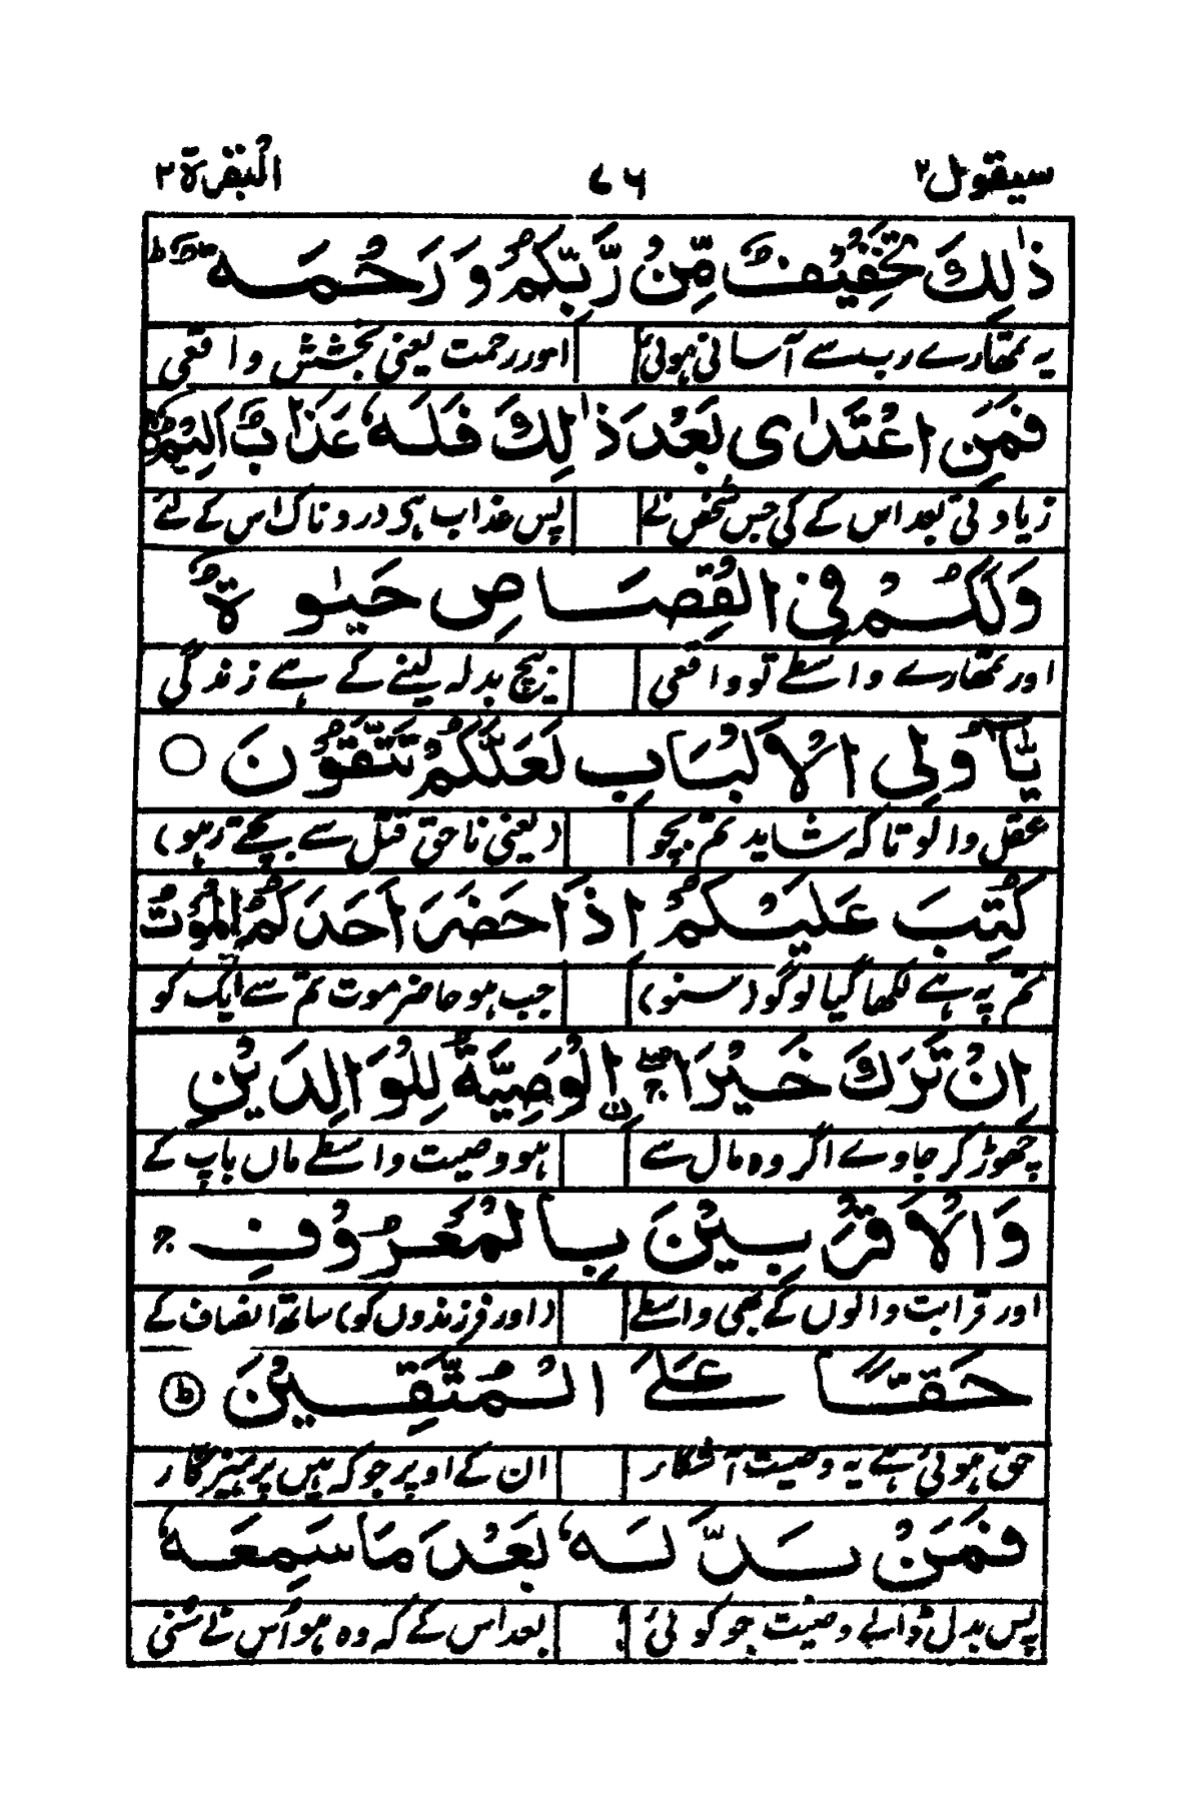 سیقول ۲ ۷۶ البقرة ۲
ذٰلِكَ تَخْفِيْفٌ مِّنْ رَّبِّكُمْ وَرَحْمَةٌ ؕ
یہ تمھارے رب سے آسانی ہوئی اور رحمت یعنی بخشش واقعی
فَمَنِ اعْتَدٰى بَعْدَ ذٰلِكَ فَلَهٗ عَذَابٌ اَلِيْمٌ
زیادتی بعد اس کے کی جس شخص نے پس عذاب ہی دردناک اس کے لئے
وَلَكُمْ فِى الْقِصَاصِ حَيٰوةٌ
اور تمھارے واسطے تو واقعی بیچ بدلہ لینے کے ہے زندگی
يّٰٓاُولِى الْاَلْبَابِ لَعَلَّكُمْ تَتَّقُوْنَ ○
عقل والو تاکہ شاید تم بچو (یعنی ناحق قتل سے بچتے رہو)
كُتِبَ عَلَيْكُمْ اِذَا حَضَرَ اَحَدَكُمُ الْمَوْتُ
تم پہ ہے لکھا گیا لوگو (سنو) جب ہو حاضر موت تم سے ایک کو
اِنْ تَرَكَ خَيْرَا ۖۚ اۨلْوَصِيَّةُ لِلْوَالِدَيْنِ
چھوڑ کر جاوے اگر وہ مال سے ہو وصیت واسطے ماں باپ کے
وَالْاَقْرَبِيْنَ بِالْمَعْرُوْفِ ۚ
اور قرابت والوں کے بھی واسطے (اور فرزندوں کو) ساتھ انصاف کے
حَقًّا عَلَى الْمُتَّقِيْنَ ؕ
حق ہوئی ہے یہ وصیت آشکار ان کے اوپر جو کہ ہیں پرہیزگار
فَمَنْۢ بَدَّلَهٗ بَعْدَ مَا سَمِعَهٗ
پس بدلی ڈالے وصیت جو کوئی بعد اس کے کہ وہ ہو اُس نے سُنی